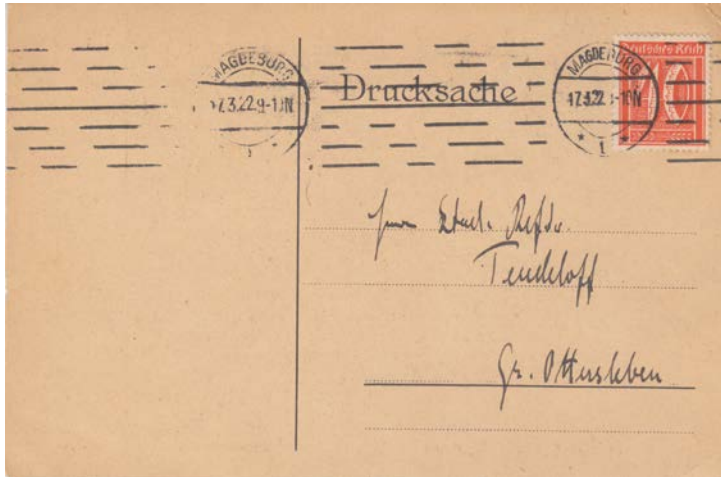 MAGDEBURG
17.3.22.9-10N
Drucksache
MAGDEBURG
17.3.22 9-10N
* 1 *
Deutsches Reich
40
Herrn
Tendeloff
Gr. Ottersleben